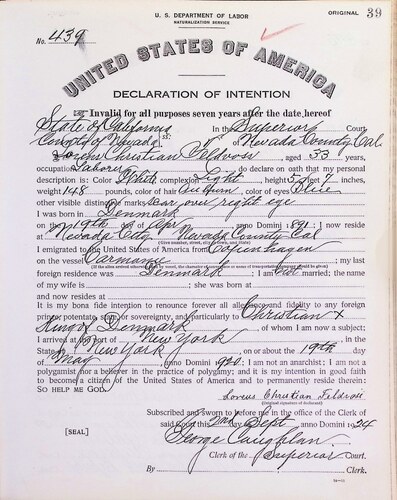 U. S. DEPARTMENT OF LABOR
NATURALIZATION SERVICE
ORIGINAL 39
No. 439
UNITED STATES OF AMERICA
DECLARATION OF INTENTION
Invalid for all purposes seven years after the date hereof
State of California In the Superior Court
County of Nevada of Nevada County Cal
Christian Feldvoss, aged 33 years,
occupation Laborer, do declare on oath that my personal
description is: Color White, complexion Light, height 5 feet 7 inches,
weight 148 pounds, color of hair Auburn, color of eyes Blue
other visible distinctive marks Scar over right eye
I was born in Denmark
on the 19th day of Apr, anno Domini 1891; I now reside
at Nevada City Nevada County Cal
(Give number, street, city or town, and State)
I emigrated to the United States of America from Copenhagen
on the vessel; my last
foreign residence was Denmark; I am not married; the name
of my wife is; she was born at
and now resides at
It is my bona fide intention to renounce forever all allegiance and fidelity to any foreign
prince, potentate, state, or sovereignty, and particularly to Christian X
King of Denmark, of whom I am now a subject;
I arrived at the port of New York, in the
State of New York, on or about the 19th day
of May, anno Domini 1920; I am not an anarchist; I am not a
polygamist nor a believer in the practice of polygamy; and it is my intention in good faith
to become a citizen of the United States of America and to permanently reside therein:
SO HELP ME GOD.
Christian Feldvoss
(Original signature of declarant)
Subscribed and sworn to before me in the office of the Clerk of
said Court this 2nd day of Sept, anno Domini 1924
[SEAL]
George Caughlan
Clerk of the Superior Court.
By, Clerk.